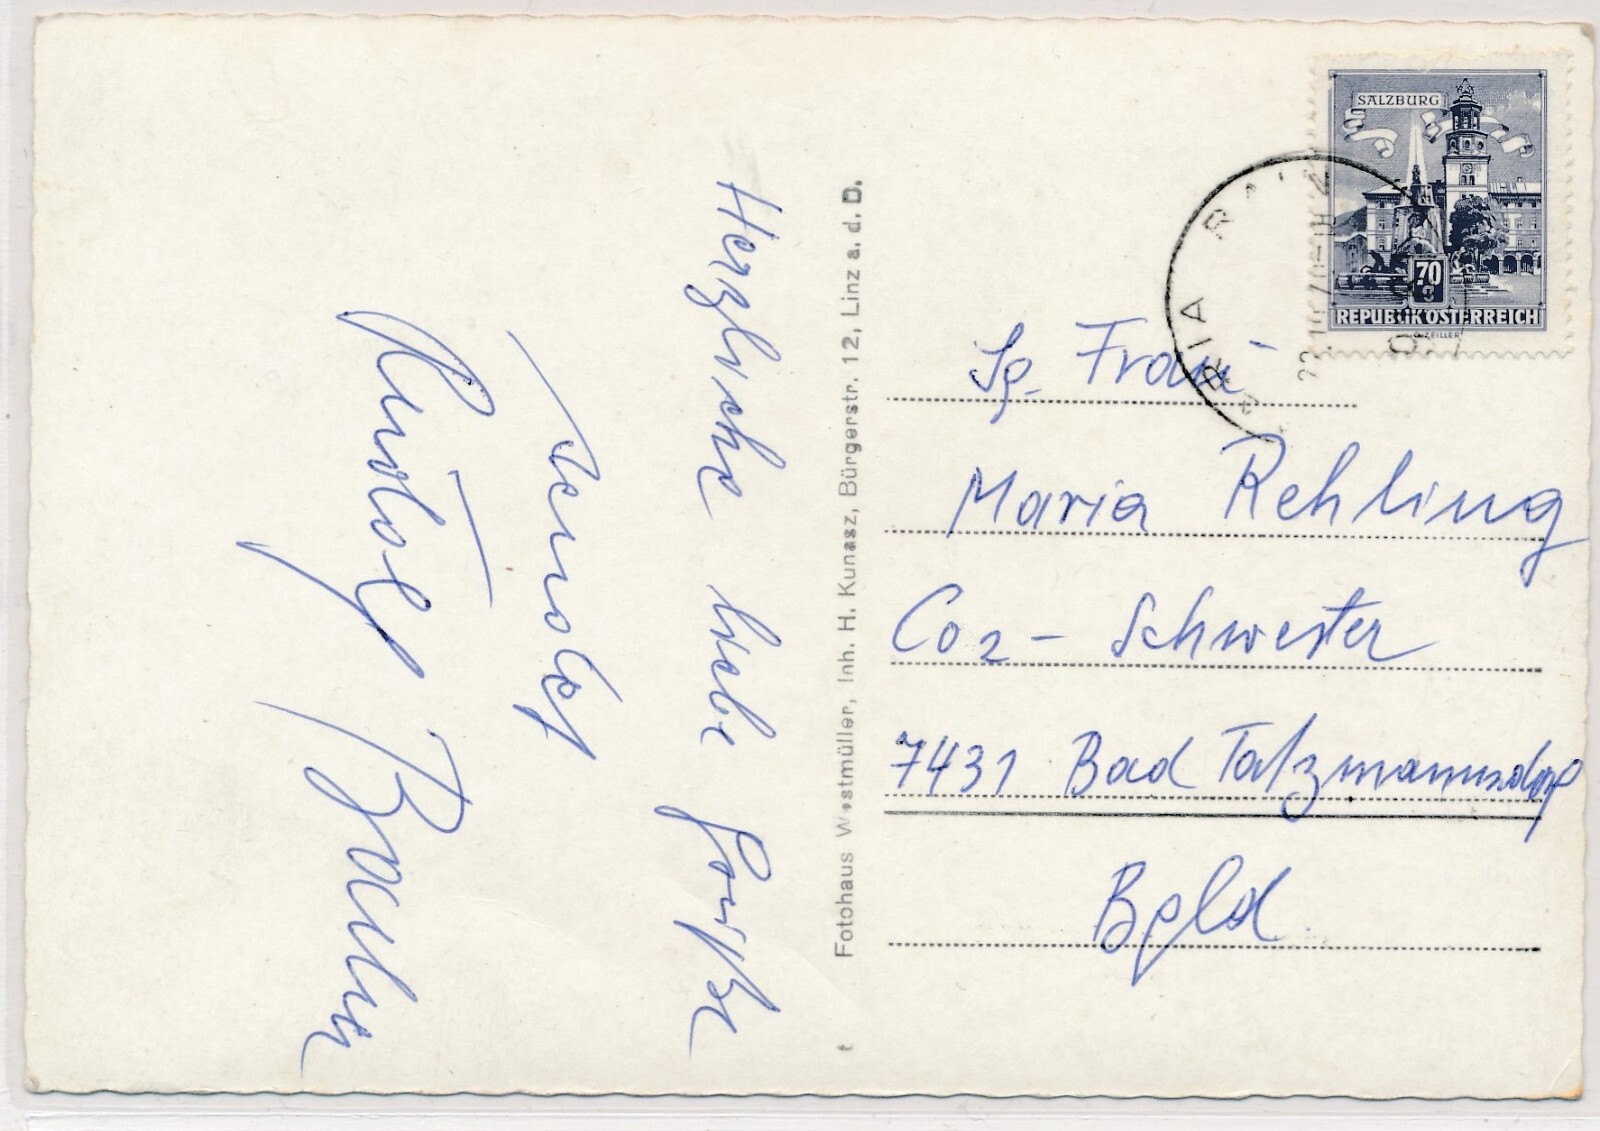 Herzliche liebe Grüße
sendet
Rudolf
Fotohaus Westmüller, Inh. H. Kunasz, Bürgerstr. 12, Linz a. d. D.
t
SALZBURG
70
g
REPUBLIK ÖSTERREICH
G. ZEILLER
MARIA
Sg. Frau
Maria Rehling
Co2 - Schwester
7431 Bad Tatzmannsdorf
Bgld.